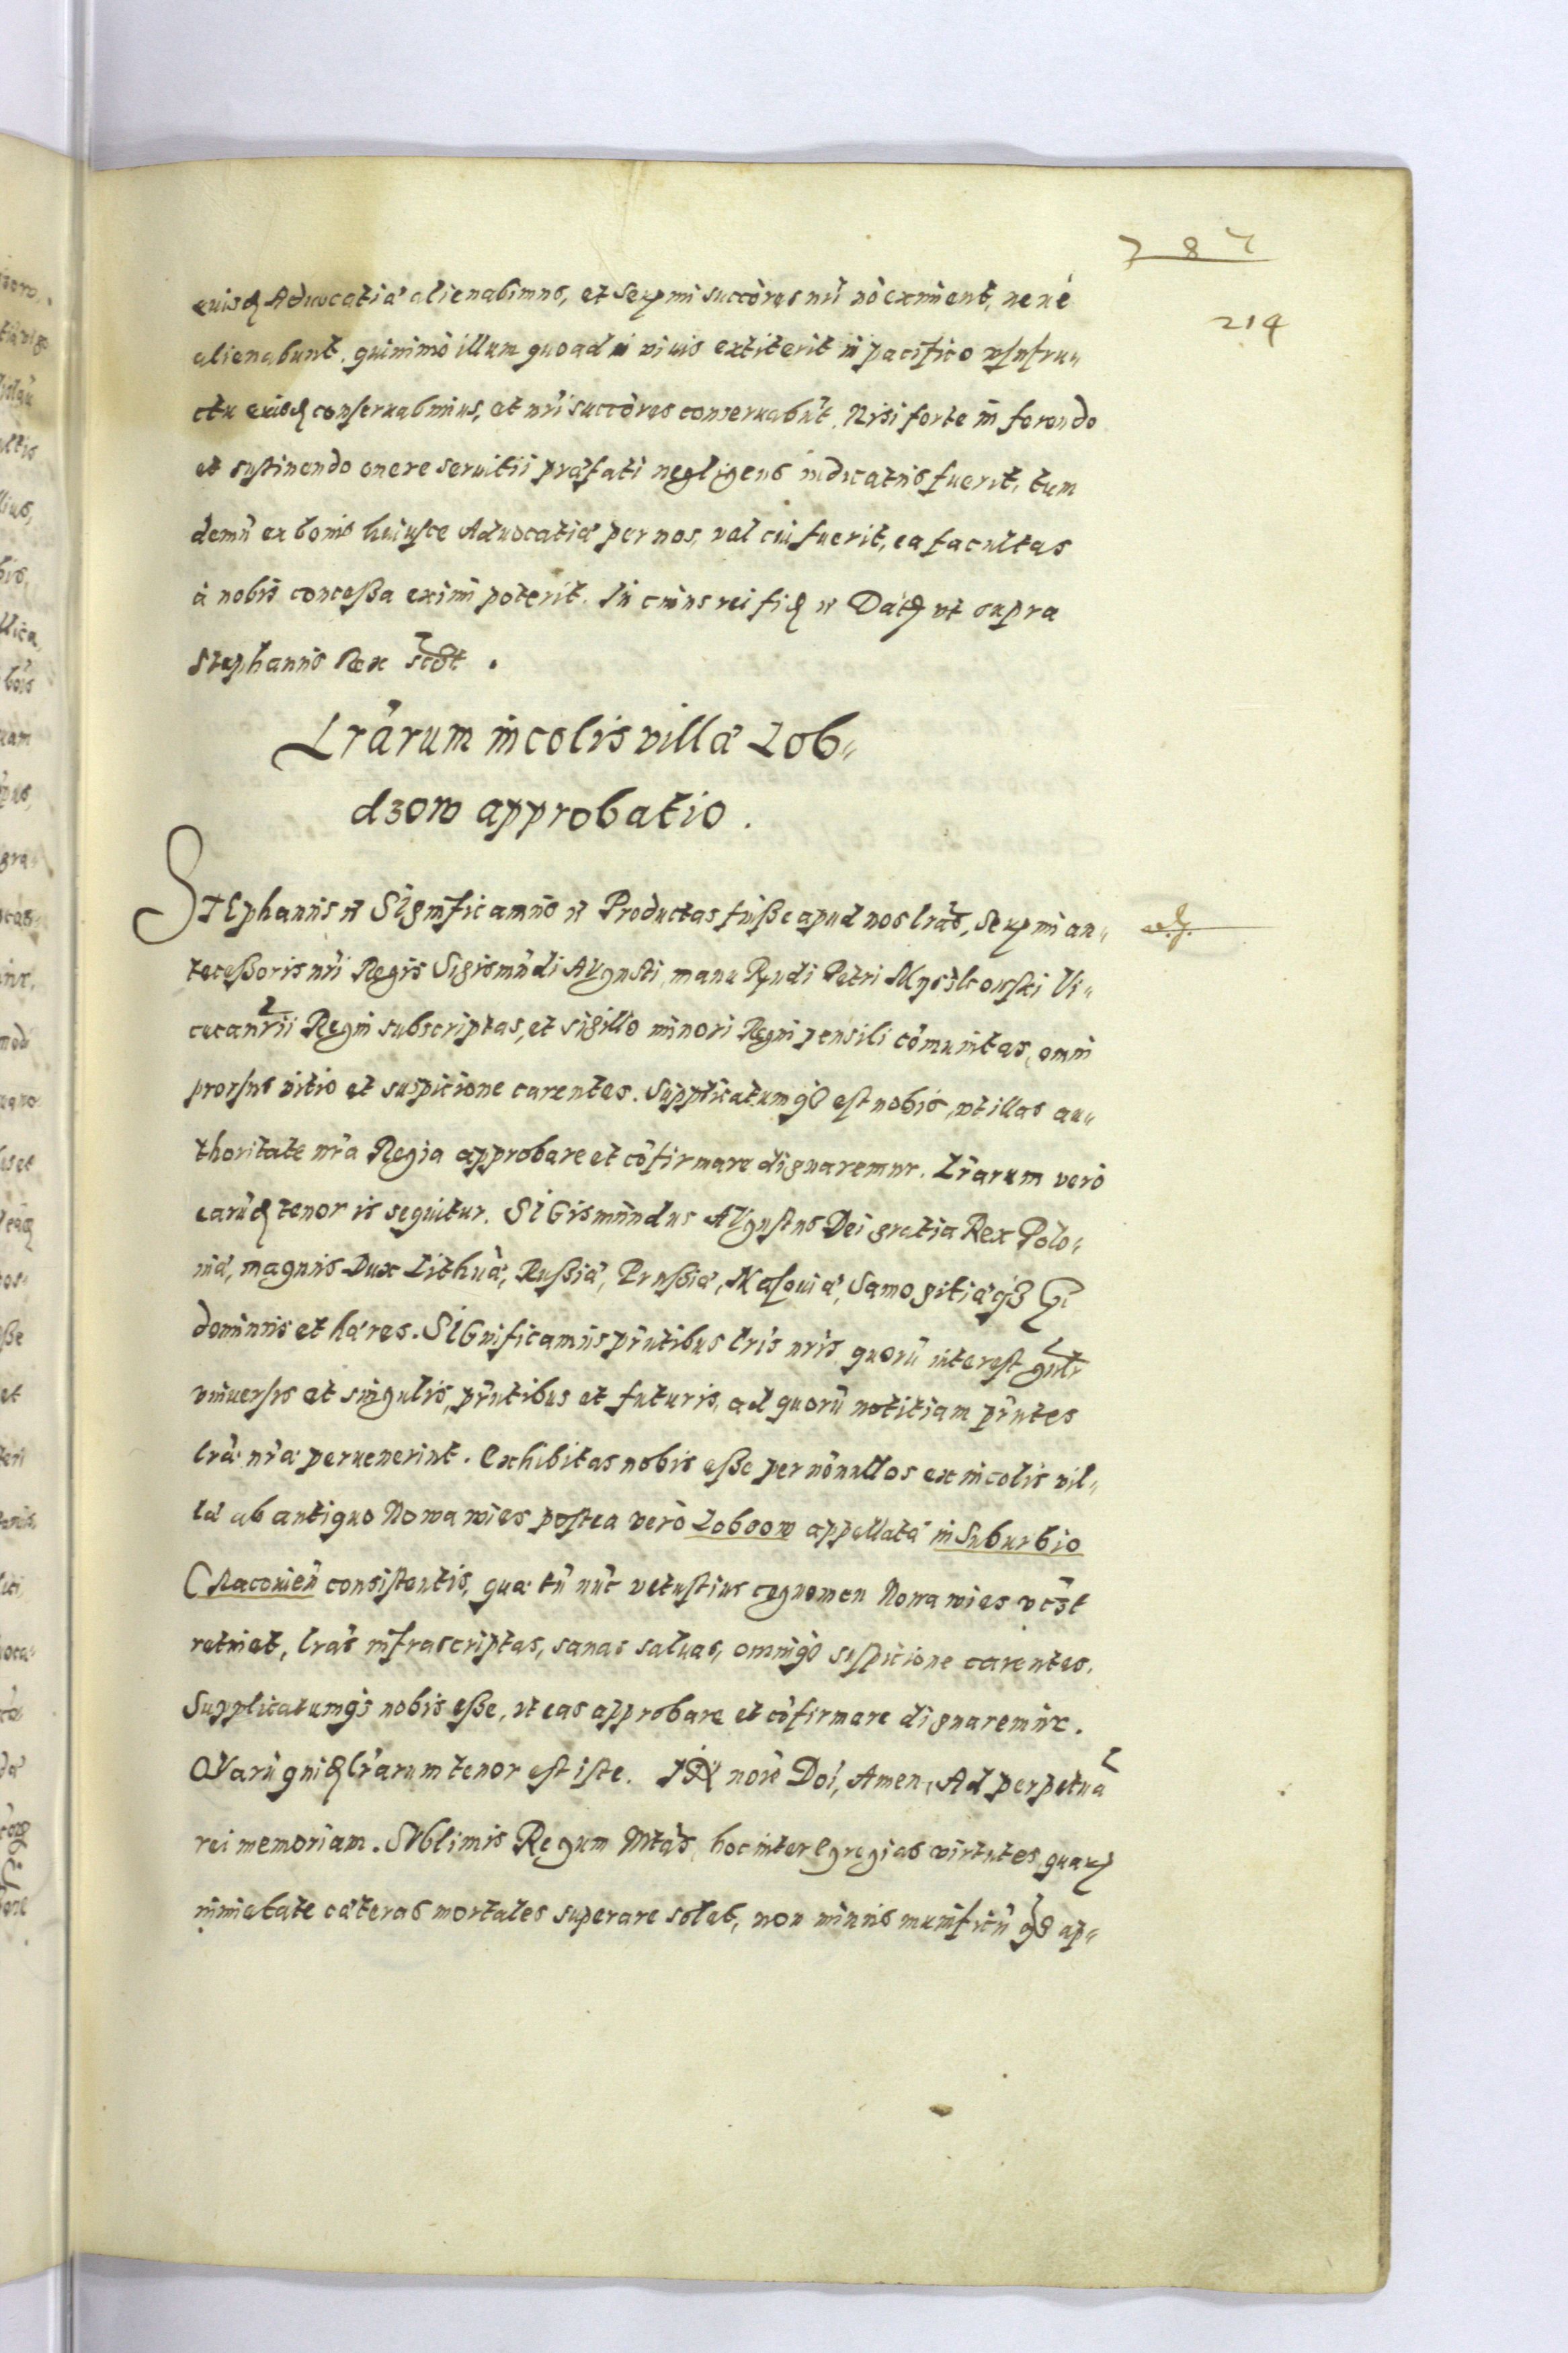 287
214
euisdē Aduocatiæ alienabimus, et Serm̄i succōres nr̄i nō eximent, neué
alienabunt, quinimo illum quoad in viuis extiterit in pacifico vsufru„
ctu euisdē conseruabimus, et nr̄i succōres conseruabūt. Nisi forte in ferendo
et sustinendo onere seruitii præfati negligens indicatus fuerit, tum
demū ex bonis huiusce Aduocatiæ per nos, vel cui fuerit, ea facultas
à nobis concessa eximi poterit. In cuius rei fidē etc Datē vt supra
Stephanus Rex sc̄dt.
Lrārum incolis villæ Lob„
dzow approbatio.
STEphanus etc SIgnificamus etc Productas fuisse apud nos lrās, Serm̄i an„
tecessoris nr̄i Regis Sigismūndi AVgusti, manu Rndi Petri Myszkowski Vi„
cecanrii Regni subscriptas, et sigillo minori Regni pensili cōmunitas, omni
prorsus vitio et suspicione carentes. Supplicatumq3 est nobis, vt illas au„
thoritate nrā Regia approbare et cōfirmare dignaremur. Lrārum verò
earūdē tenor is sequitur. SIGismūndus AVgustus Dei gratia Rex Polo„
niæ, magnus Dux Lithuæ, Russiæ, Prussiæ, Masouiæ, Samogitiæq3 etc
dominus et hæres. SIGnificamus pn̄tibus lrīs nrīs quorū interest gnlr
vniuersis et singulis, pn̄tibus et futuris, ad quorū notitiam pn̄tes
lræ nræ peruenerint. Exhibitas nobis esse per nōnullos ex incolis vil„
læ ab antiquo Nowa wies postea verò Lobzow appellatæ in Suburbio
CRacouien̄ consistentis, quæ tn̄ nūc vetustius cognomen Nowa wies vcz̄t
retinet, lrās infrascriptas, sanas saluas, omniq3 suspicione carentes.
Supplicatumq3 nobis esse, vt eas approbare et cōfirmare dignaremur.
QVarū quidē lrārum tenor est iste. IN nōie Dōi, Amen, Ad perpetuā
rei memoriam. SVblimis Regum Mtās, hoc inter egregias virtutes, quarū
immietate cæteras mortales superare solet, non minus munificū q3 ap„